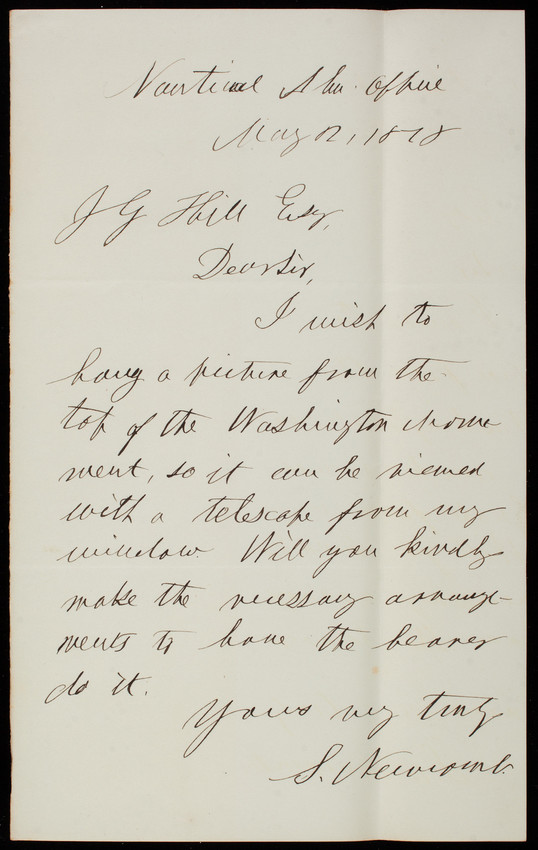 Nautical Alm. Office
May 2, 1878
J G Hill Esq,
Dear Sir,
I wish to
hang a picture from the
top of the Washington Monu-
ment, so it can be viewed
with a telescope from my
window. Will you kindly
make the necessary arrange-
ments to have the bearer
do it.
Yours very truly
S. Newcomb.